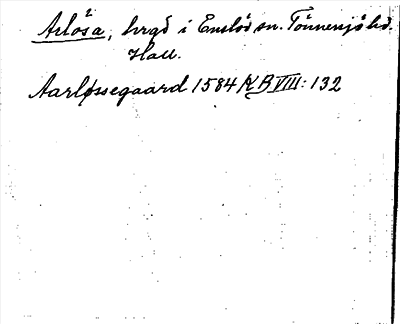 Arlösa, hrgd i Enslöv sn. Tönnersjö hd.
Hall.
Aarløssegaard 1584 KB VIII: 132